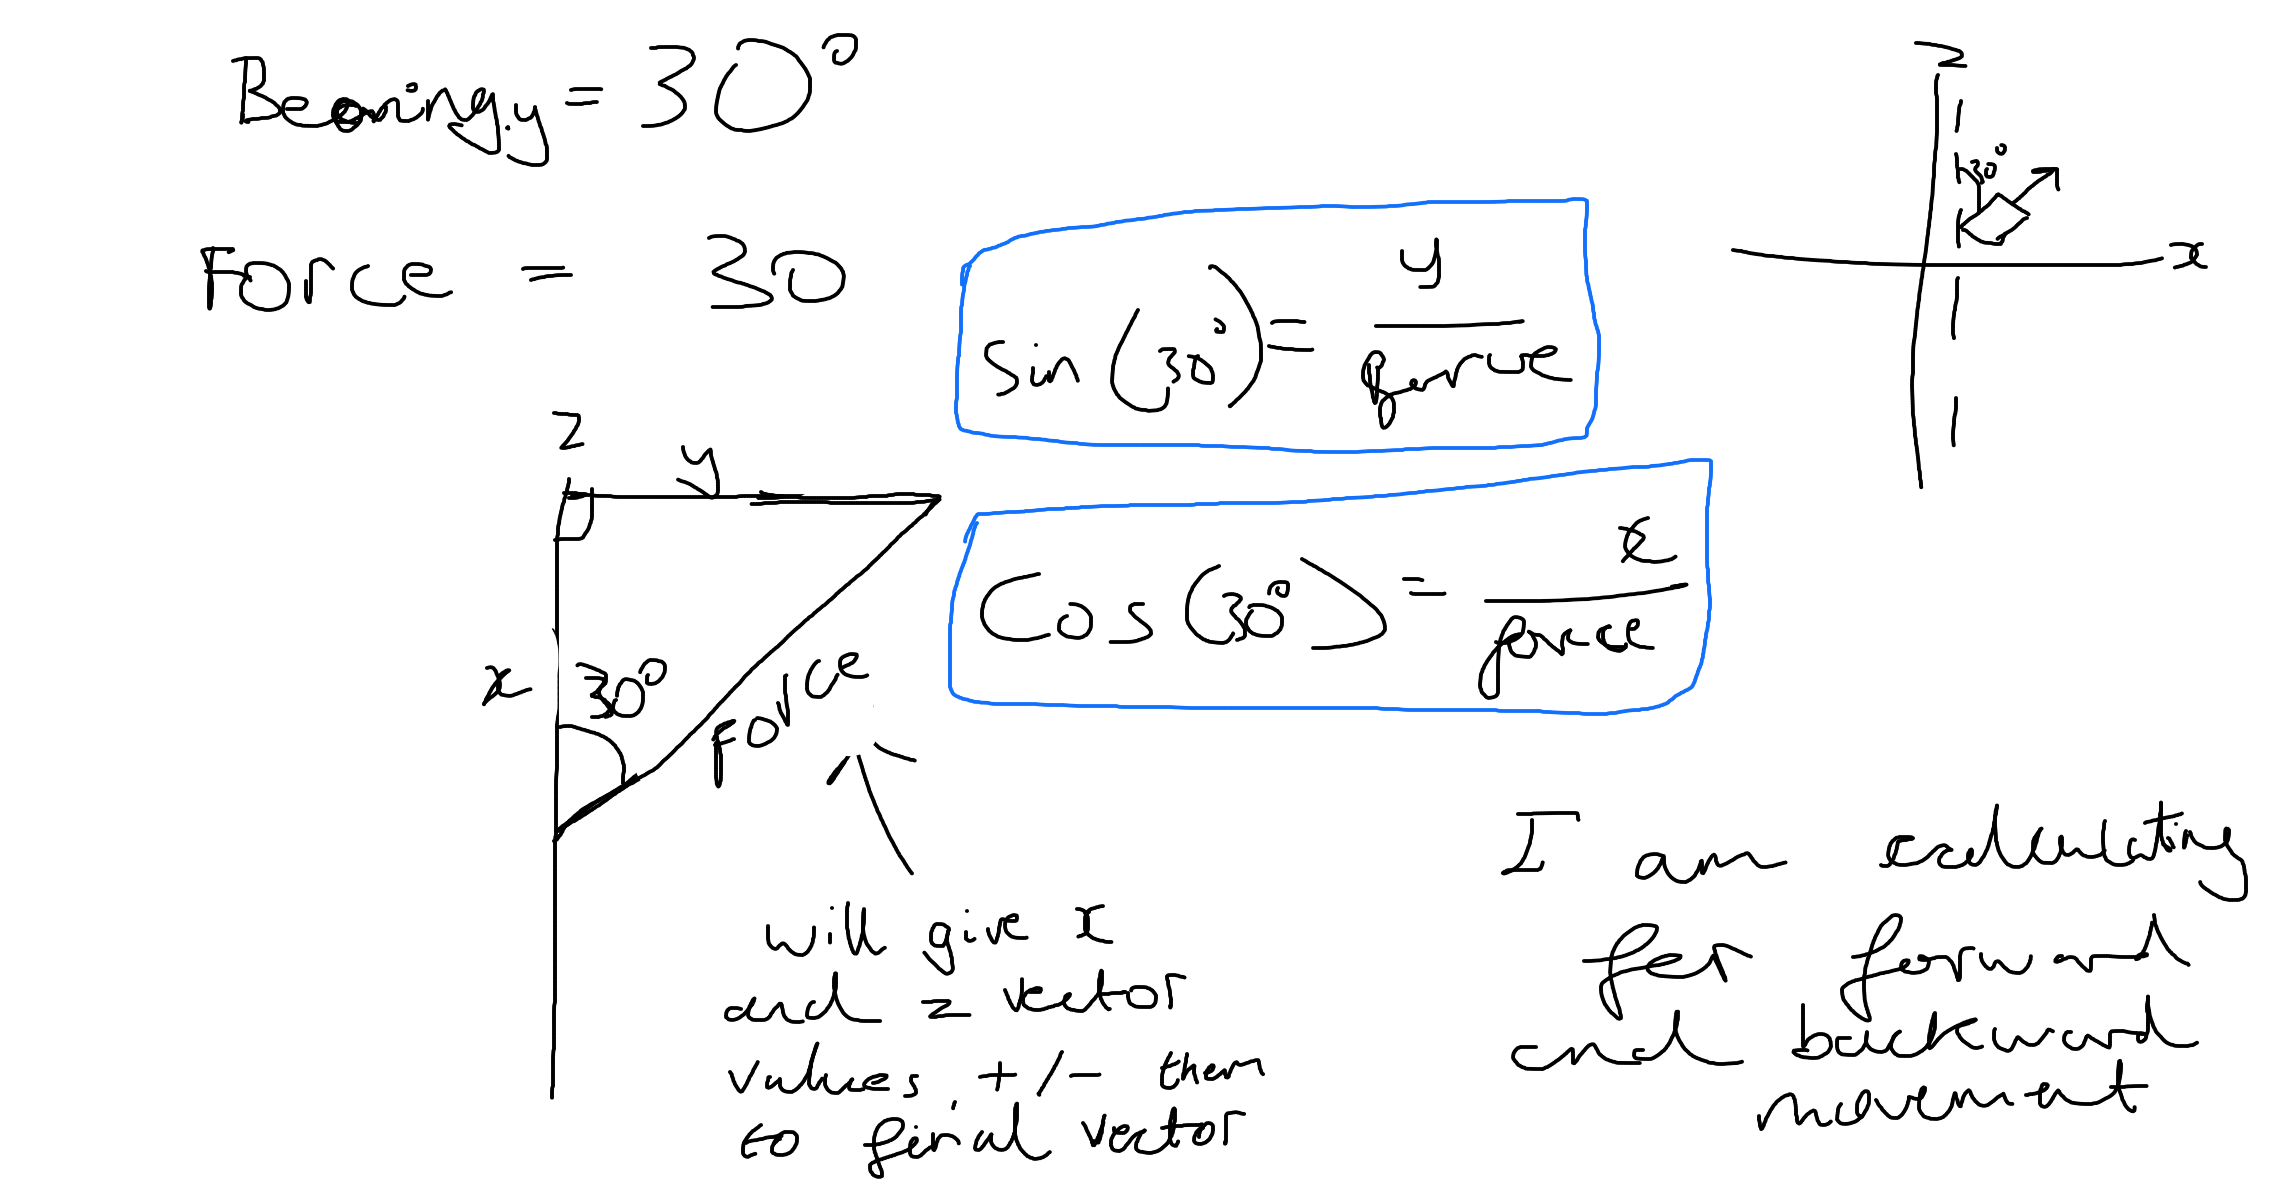 Bearing.y = 30°
Force = 30
sin (30°) = y / force
cos (30°) = x / force
z
30°
x
z
y
x
30°
Force
will give x
and z vector
values. +/- them
to final vector
I am calculating
for forward
and backward
movement